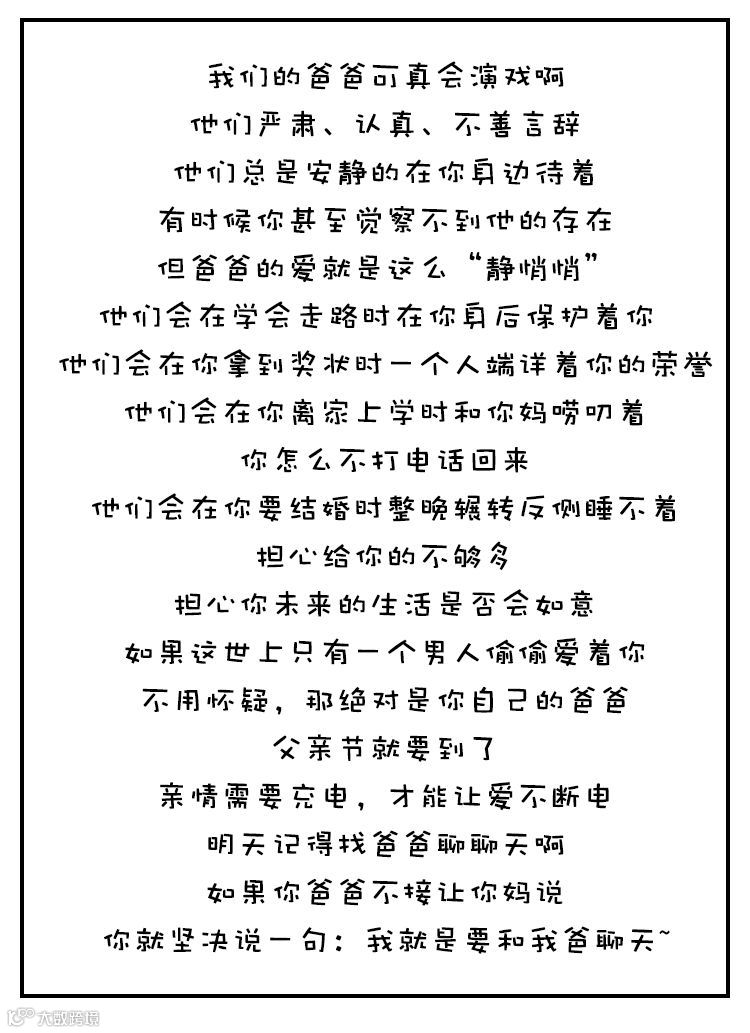 我们的爸爸可真会演戏啊
他们严肃、认真、不善言辞
他们总是安静的在你身边待着
有时候你甚至觉察不到他的存在
但爸爸的爱就是这么“静悄悄”
他们会在学会走路时在你身后保护着你
他们会在你拿到奖状时一个人端详着你的荣誉
他们会在你离家上学时和你妈唠叨着
你怎么不打电话回来
他们会在你要结婚时整晚辗转反侧睡不着
担心给你的不够多
担心你未来的生活是否会如意
如果这世上只有一个男人偷偷爱着你
不用怀疑，那绝对是你自己的爸爸
父亲节就要到了
亲情需要充电，才能让爱不断电
明天记得找爸爸聊聊天啊
如果你爸爸不接让你妈说
你就坚决说一句：我就是要和我爸聊天~
大数跨境